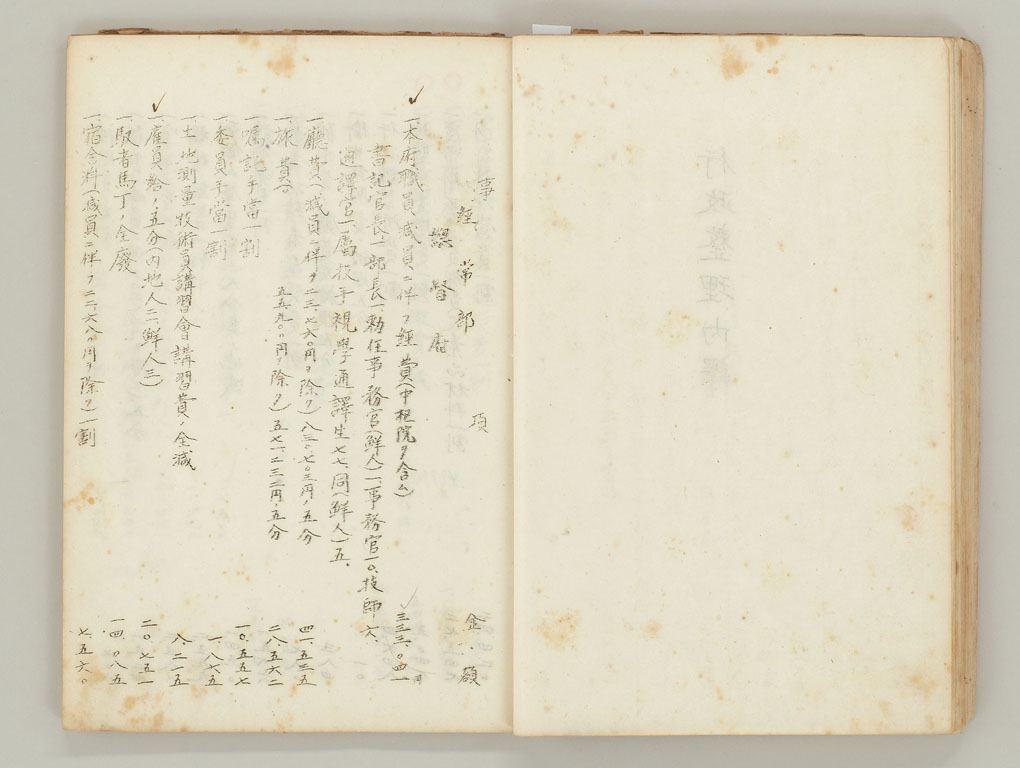 行政整理内譯
事項 金額
經常部
總督府
一、本府職員減員ニ伴フ經費(中樞院ヲ含ム) 三三三、〇四一円
書記官長一、部長一、勅任事務官(鮮人)一、事務官一〇、技師六、
通譯官一、屬技手視學通譯生七七、同(鮮人)五、
一、廳費(減員ニ伴フ二三、七六〇円ヲ除ク)八三〇、七〇三円ノ五分 四一、五三五
一、旅費(〃 五五、九〇〇円ヲ除ク)五七一、二三三円ノ五分 二八、五六二
一、囑託手當一割 一〇、五五七
一、委員手當一割 一、八七五
一、土地測量技術員講習會講習費ノ全減 八、二一五
一、雇員給ノ五分(内地人二、鮮人三) 二〇、七五一
一、馭者馬丁ノ全廢 一四、〇八五
一、宿舍料(減員ニ伴フ二二、六八〇円ヲ除ク)一割 七、五六〇